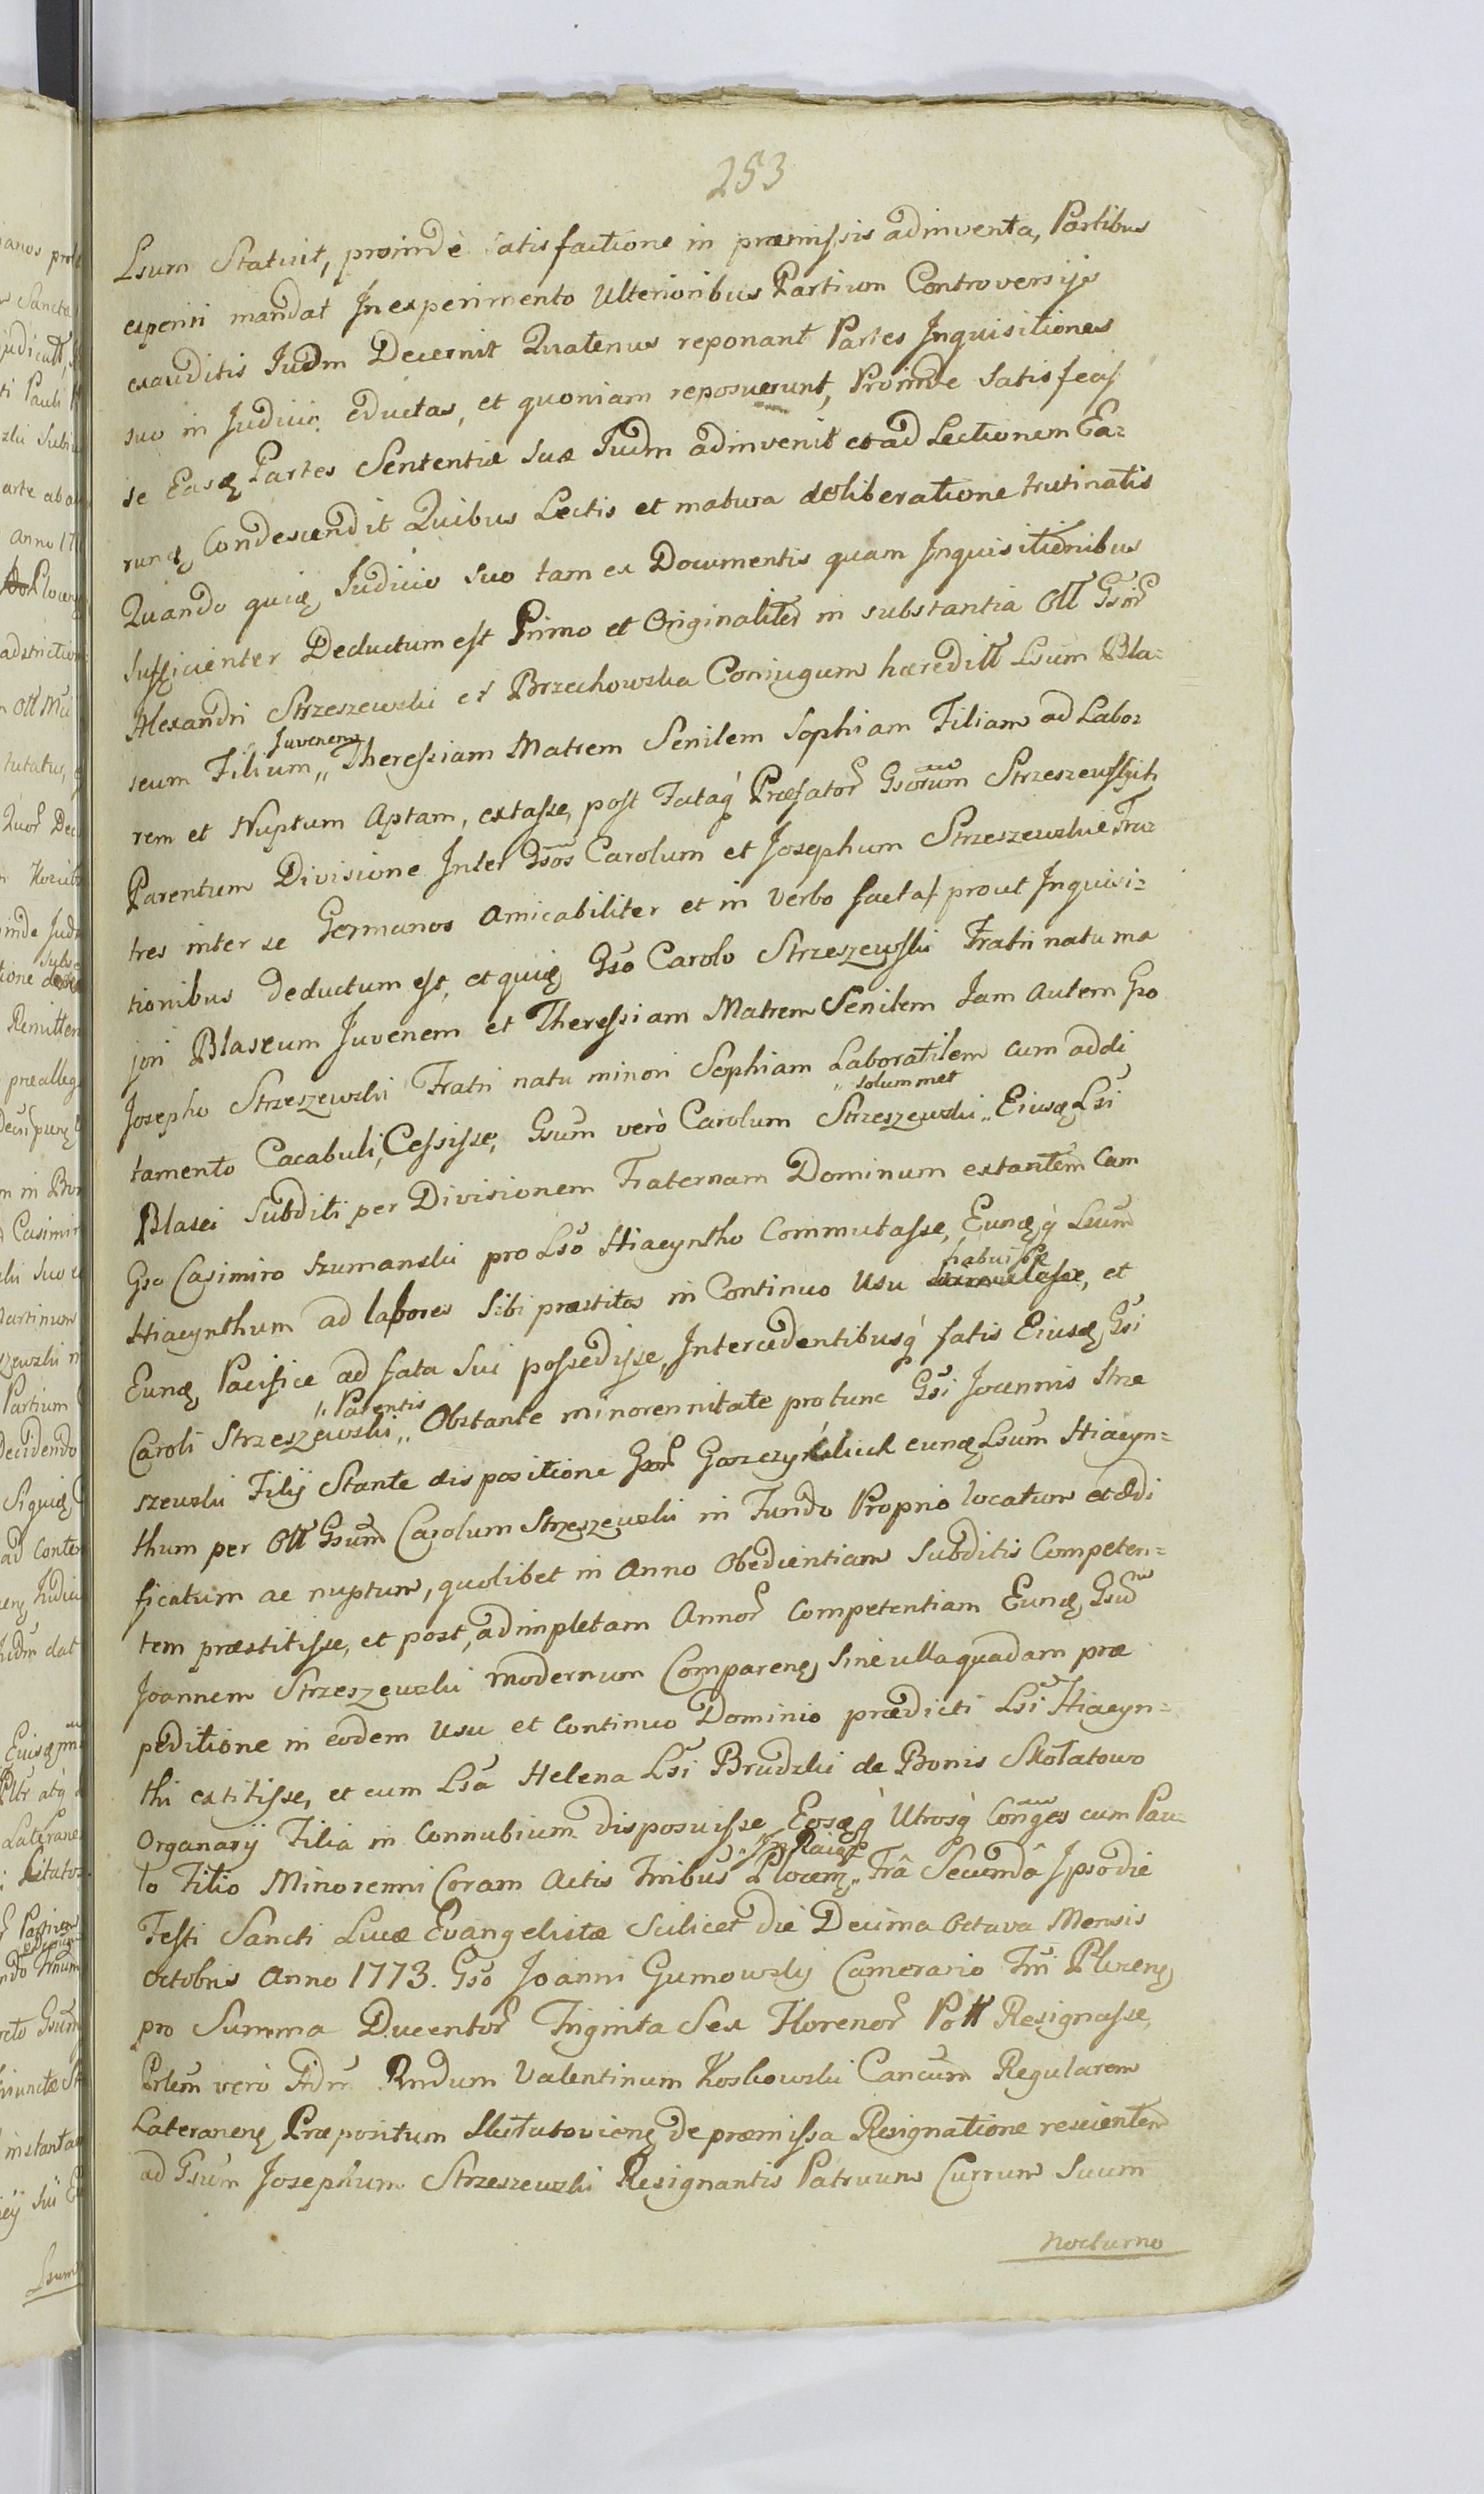 253
Lsum Statuit, proindè satisfactione in præmissis adinventa, Partibus
experiri mandat In experimento Ulterioribus Partium Controversijs
exauditis Iudm Decernit Quatenus reponant Partes Inquisitiones
suo in Judicio eductas, et quoniam reposuerunt, Proinde Satisfecis
se Easq Partes Sententiæ suæ Iudm adinvenit et ad Lectionem Ea=
runq Condescendit Quibus Lectis et matura deliberatione trutinatis
Quando quiq Judicio suo tam ex Documentis quam Inquisitionibus
sufficienter Deductum est Primo et Originaliter in substantia Oll Gsor
Alexandri Strzeszewski et Brzechowska Coniugum hæredill Lsum Bla=
seum Filium „ Juvenem Theressiam Matrem Senilem Sophiam Filiam ad Labo=
rem et Nuptum Aptam, extasse, post Fataq Præfator Gsorum Strzeszewskich
Parentum Divisione Inter Gsos Carolum et Josephum Strzeszewskie Fra=
tres inter se Germanos Amicabiliter et in Verbo facta prout Inquisi=
tionibus deductum est, et quiq Gso Carolo Strzeszewski Fratri natu ma
jori Blaseum Juvenem et Theressiam Matrem Senilem Jam Autem Gso
Josepho Strzeszewski Fratri natu minori Sophiam Laboratilem cum addi
tamento Cacabuli, Cessisse, Gsum verò Carolum Strzeszewski „ solummet Eiusq Lsi
Blasei Subditi per Divisionem Fraternam Dominum extantem Cum
Gso Casimiro Szumanski pro Lso Hiacyntho Commutasse, Eunqq Lsum
Hiacynthum ad labores Sibi præstitos in Continuo Usu habuisse, et
Eunq Pacifice ad fata sui possedisse, Intercedentibusq fatis Eiusq Gsi
Caroli Strzeszewski „ Parentis Obstante minorennitate pro tunc Gsi Joannis Strze
szewski Filij Stante dispositione Gsor Goszczynskich eunq Lsum Hiacyn=
thum per Oll Gsum Carolum Strzeszewski in Fundo Proprio locatum et ædi
ficatum ac nuptum, quolibet in Anno Obedientiam Subditis Competen=
tem præstitisse, et post, adimpletam Annor Competentiam Eunq Gsum
Joannem Strzeszewski modernum Comparenq Sine ulla quadam præ
peditione in eodem Usu et Continuo Dominio prædicti Lsi Hiacyn=
thi extitisse, et cum Lsa Helena Lsi Brudzki de Bonis Skołatowo
Organarij Filia in Connubium disposuisse, Eosqq Utrosq Conges cum Pau=
lo Filio Minorenni Coram Actis Tribus Plocenq „ Raiaq Frâ Secundâ Ipso die
Festi Sancti Lucæ Evangelistæ Scilicet die Decima Octava Mensis
Octobris Anno 1773. Gso Joanni Gumowski Camerario Tri Plocenq
pro Summa Ducentor Triginta Sex Florenor Poll Resignasse,
Prlem verò Adm Rndum Valentinum Koskowski Cancum Regularem
Lateranenq Præpositum Skołatovienq de præmissa Resignatione rescientem
ad Gsum Josephum Strzeszewski Resignantis Patruum Currum Suum
nocturno